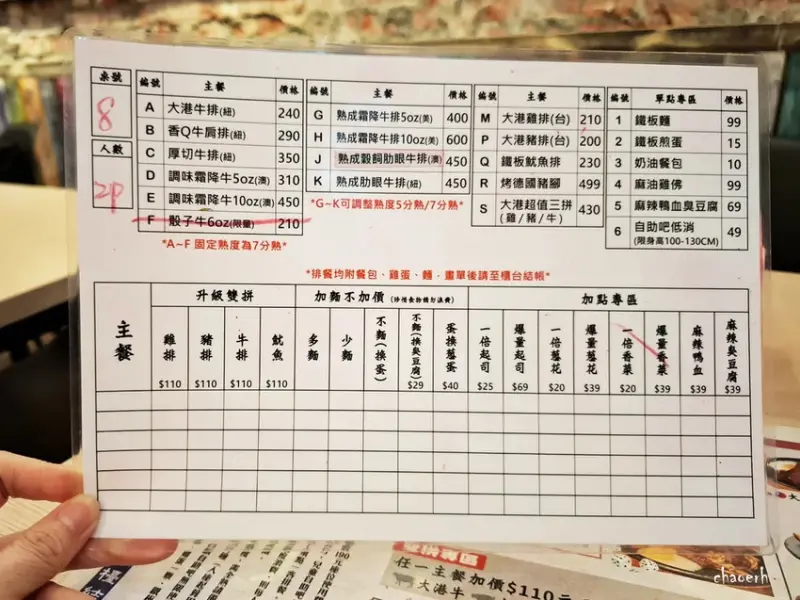 桌號
8
人數
2P
編號 主餐 價格
A 大港牛排(紐) 240
B 香Q牛肩排(紐) 290
C 厚切牛排(紐) 350
D 調味霜降牛5oz(澳) 310
E 調味霜降牛10oz(澳) 450
F 骰子牛6oz(限量) 210
*A~F 固定熟度為7分熟*
編號 主餐 價格
G 熟成霜降牛排5oz(美) 400
H 熟成霜降牛排10oz(美) 600
J 熟成穀飼肋眼牛排(澳) 450
K 熟成肋眼牛排(紐) 450
*G~K可調整熟度5分熟/7分熟*
編號 主餐 價格
M 大港雞排(台) 210
P 大港豬排(台) 200
Q 鐵板魷魚排 230
R 烤德國豬腳 499
S 大港超值三拼(雞/豬/牛) 430
編號 單點專區 價格
1 鐵板麵 99
2 鐵板煎蛋 15
3 奶油餐包 10
4 麻油雞佛 99
5 麻辣鴨血臭豆腐 69
6 自助吧低消 49
(限身高100-130CM)
*排餐均附餐包、雞蛋、麵，畫單後請至櫃台結帳*
主餐
升級雙拼
雞排 $110
豬排 $110
牛排 $110
魷魚 $110
加麵不加價(珍惜食物請勿浪費)
多麵
少麵
不麵(換蛋)
不麵(換臭豆腐) $29
蛋換蔥蛋 $40
加點專區
一倍起司 $25
爆量起司 $69
一倍蔥花 $20
爆量蔥花 $39
一倍香菜 $20
爆量香菜 $39
麻辣鴨血 $39
麻辣臭豆腐 $39
任一主餐加價$110元
大港牛
chaoerh